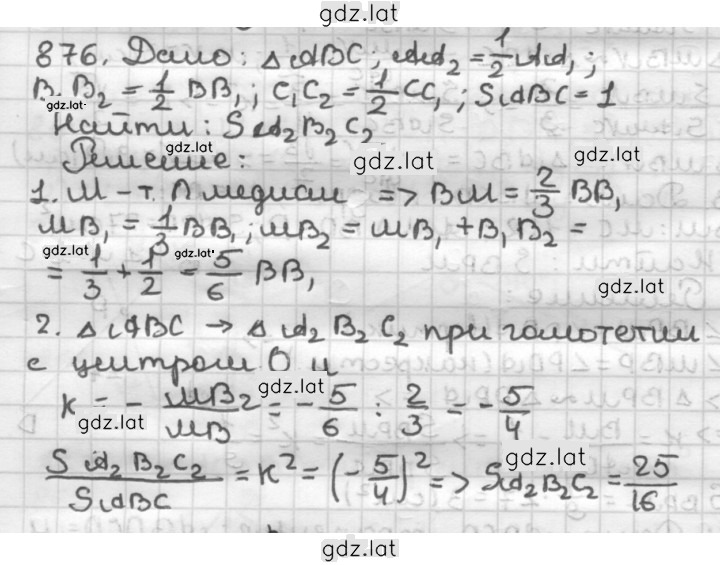 gdz.lat
876. Дано: △ABC, A₁A₂ = 1/2 AA₁;
B₁B₂ = 1/2 BB₁; C₁C₂ = 1/2 CC₁; SABC = 1
gdz.lat
Найти: SA₂B₂C₂
gdz.lat
gdz.lat
Решение:
gdz.lat
1. М - т. ∩ медиан => BM = 2/3 BB₁
MB₁ = 1/3 BB₁; MB₂ = MB₁ + B₁B₂ =
gdz.lat
gdz.lat
= 1/3 + 1/2 = 5/6 BB₁
gdz.lat
2. △ABC → △A₂B₂C₂ при гомотетии
с центром О и
gdz.lat
K = - MB₂/MB = - 5/6 : 2/3 = - 5/4
gdz.lat
gdz.lat
SA₂B₂C₂/SABC = K² = (- 5/4)² => SA₂B₂C₂ = 25/16
gdz.lat